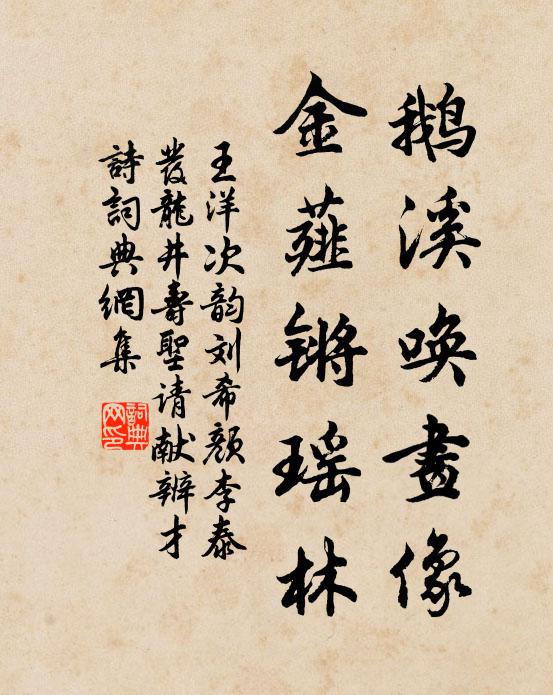 鹅溪唤畫像
金薤锵瑶林
王洋次韵刘希颜李泰
發龍井壽聖请献辨才
詩詞典網集
詞典網印